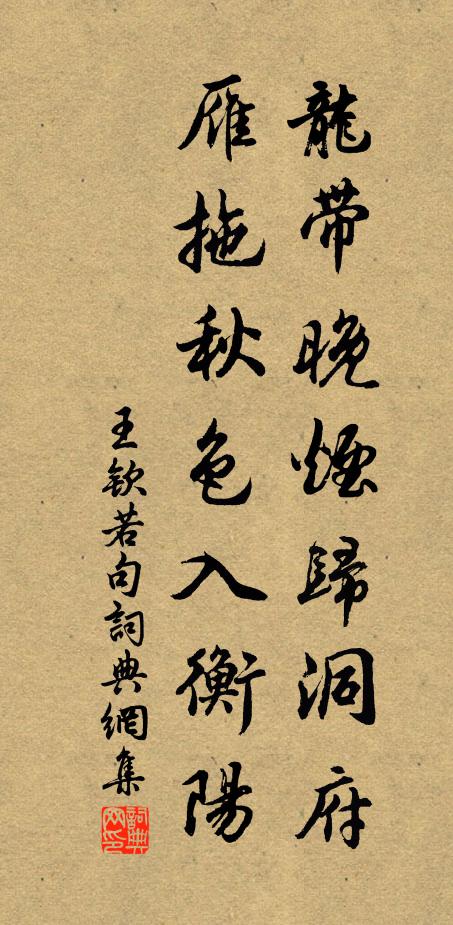 龍帶晚煙歸洞府
雁拖秋色入衡陽
王欽若句詞典網集
詞典网印